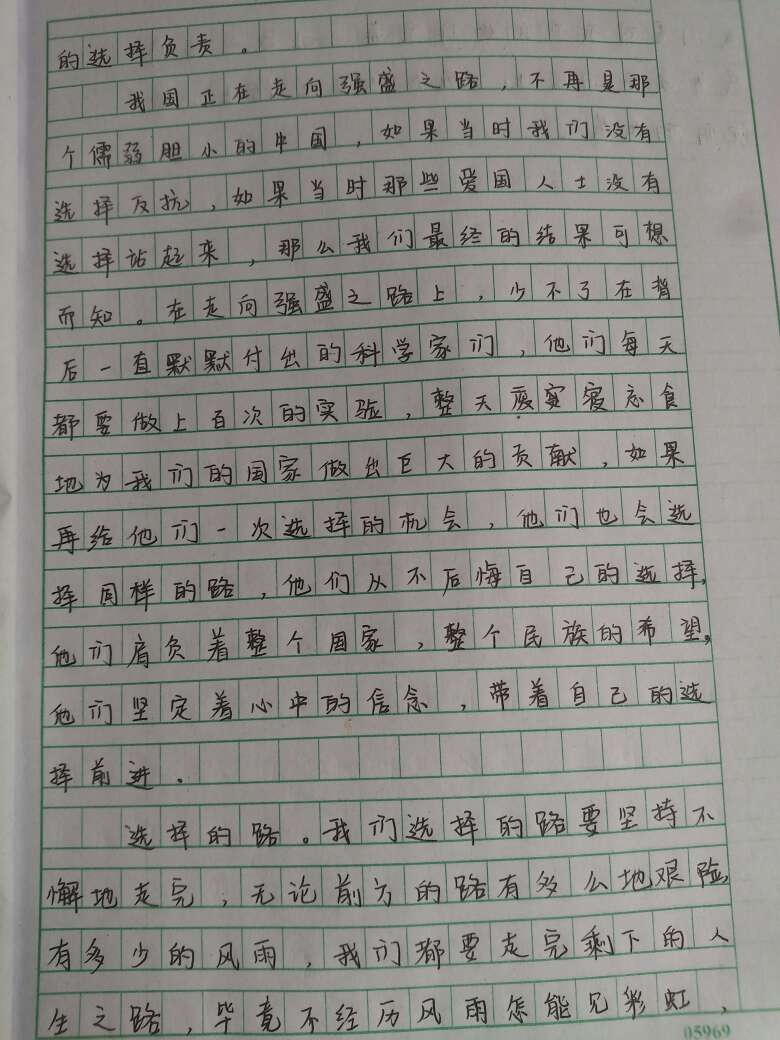 的选择负责。
我国正在走向强盛之路，不再是那
个儒弱胆小的中国，如果当时我们没有
选择反抗，如果当时那些爱国人士没有
选择站起来，那么我们最终的结果可想
而知。在走向强盛之路上，少不了在背
后一直默默付出的科学家们，他们每天
都要做上百次的实验，整天废寝忘食
地为我们的国家做出巨大的贡献，如果
再给他们一次选择的机会，他们也会选
择同样的路，他们从不后悔自己的选择，
他们肩负着整个国家，整个民族的希望，
他们坚定着心中的信念，带着自己的选
择前进。
选择的路。我们选择的路要坚持不
懈地走完，无论前方的路有多么地艰险，
有多少的风雨，我们都要走完剩下的人
生之路，毕竟不经历风雨怎能见彩虹，
05969